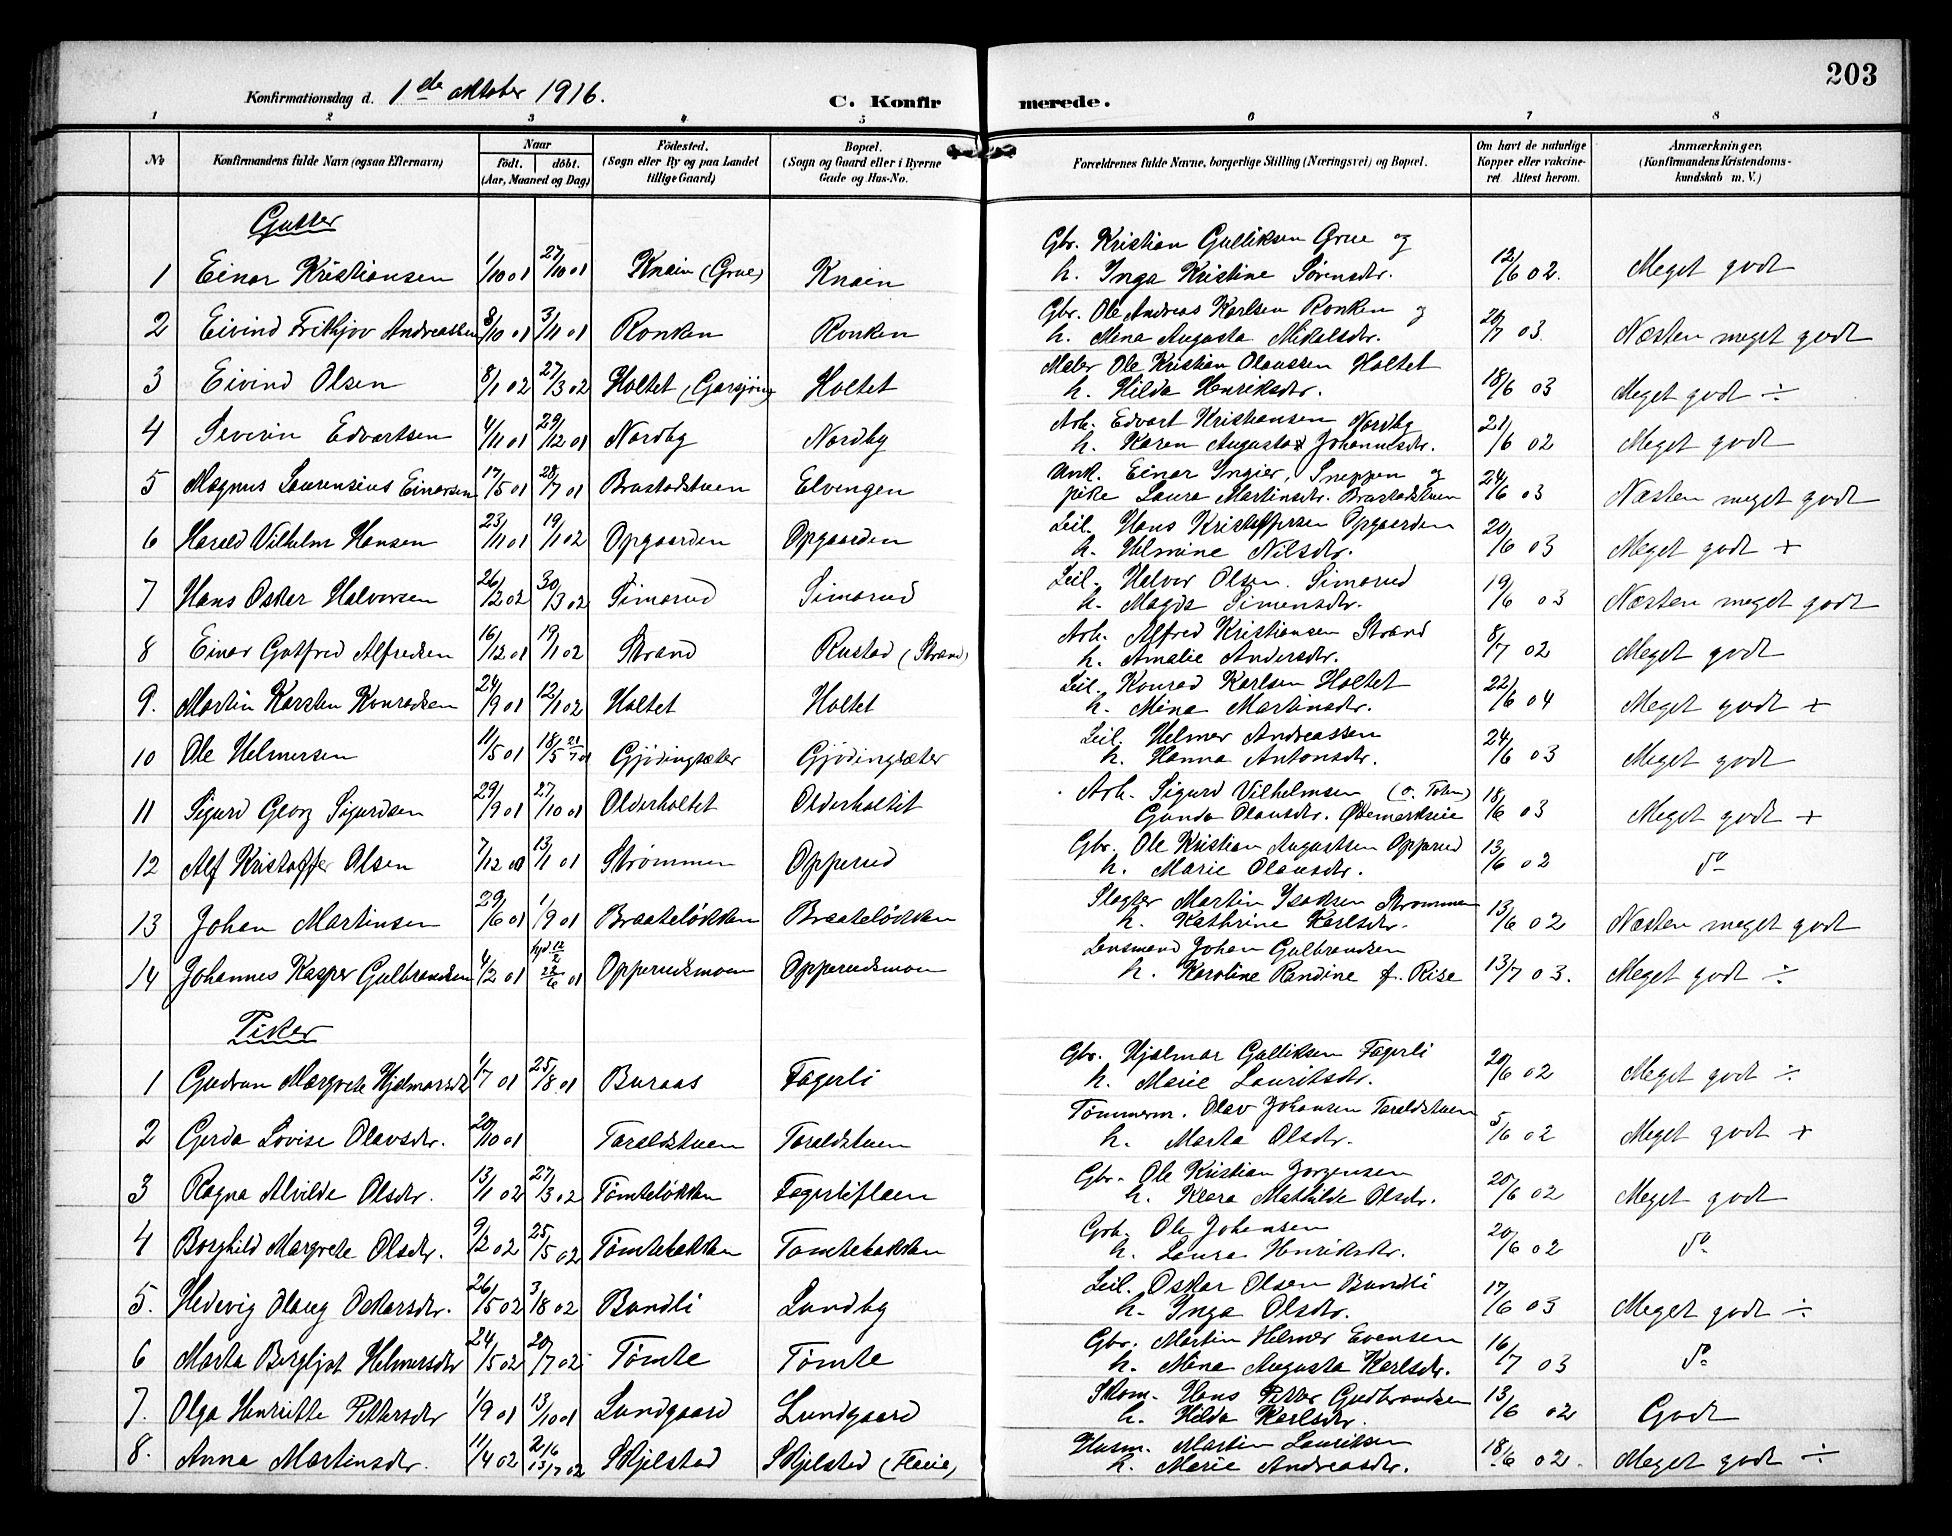 203
Konfirmationsdag d. 1ste oktober 1916. C. Konfirmerede.
1 2 3 4 5 6 7 8
No Konfirmandens fulde Navn (ogsaa Efternavn) Naar født. døbt. (Aar, Maaned og Dag) Fødested. (Sogn eller By og paa Landet tillige Gaard) Bopæl. (Sogn og Gaard eller i Byerne Gade og Hus-No. Forældrenes fulde Navne, borgerlige Stilling (Næringsvei) og Bopæl. Om havt de naturlige Kopper eller vaccineret Attest herom. Anmærkninger. (Konfirmandens Kristendomskundskab m. V.)
Gutter
1 Einar Kristiansen 1/10 01 27/10 01 Knain (Grue) Knain Gbr. Kristian Gulliksen Grue og h. Inga Kristine Sørensdr. 12/6 02. Meget godt
2 Eivind Frithjov Andreassen 8/10 01 3/11 01 Ronken Ronken Gbr. Ole Andreas Karlsen Ronken og h. Mina Augusta Mikalsdr. 20/7 03. Næsten meget godt
3 Eivind Olsen 8/1 02 27/3 02 Holtet (Garsjøen) Holtet Maler Ole Kristian Olaussen Holtet h. Hilda Henriksdr. 18/6 03 Meget godt ÷
4 Severin Edvartsen 4/11 01 29/12 01 Nordby Nordby Arb. Edvart Kristiansen Nordby h. Karen Augusta Johannesdr. 21/6 02 Meget godt
5 Magnus Laurensius Einarsen 17/5 01 28/7 01 Brastadstuen Elvengen Unk. Einar Ingier, Sneppen og pike Laura Martinsdr. Brastadstuen 24/6 03 Næsten meget godt
6 Harald Vilhelm Hansen 23/11 01 19/1 02 Opgaarden Opgaarden Leil. Hans Kristoffersen Opgaarden h. Helmine Nilsdr. 20/6 03 Meget godt +
7 Hans Oskar Halvorsen 26/2 02 30/3 02 Simarud Simarud Leil. Halvor Olsen Simarud h. Magda Simensdr. 19/6 03 Næsten meget godt
8 Einar Gotfred Alfredsen 16/12 01 19/1 02 Strand Rustad (Strand) Arb. Alfred Kristiansen Strand h. Amalie Andersdr. 8/7 02 Meget godt
9. Martin Karsten Konradsen 24/9 01 12/1 02 Holtet Holtet Leil. Konrad Karlsen Holtet h. Mina Martinsdr. 22/6 04 Meget godt +
10 Ole Helmersen 11/5 01 18/5 21/7 01 Gjødingsæter Gjødingsæter Leil. Helmer Andreassen h. Hanna Antonsdr. 24/6 03 Meget godt
11 Sigurd Georg Sigurdsen 29/9 01 27/10 01 Olderholtet Olderholtet Arb. Sigurd Vilhelmsen Gunda Olausdr. 18/6 03 Meget godt +
12 Alf Kristoffer Olsen 7/12 00 13/1 01 Strømmen Opperud Gbr. Ole Kristian Augustsen Opperud h. Marie Olausdr. 13/6 02 do
13 Johan Martinsen 29/6 01 1/9 01 Braateløkken Braateløkken Slagter Martin Isaksen Strømmen h. Kathrine Karlsdr. 13/6 02 Næsten meget godt
14 Johannes Kasper Gulbrandsen 4/2 01 hjd 12/2 22/6 01 Opperudsmoen Opperudsmoen Lensmand Johan Gulbrandsen h. Karoline Randine f. Rise 13/7 03. Meget godt ÷
Piker
1 Gudrun Margrete Hjalmarsdr 1/7 01 25/8 01 Buraas Fagerli Gbr. Hjalmar Gulliksen Fagerli h. Marie Lauritsdr. 20/6 02 Meget godt ÷
2 Gerda Lovise Olavsdr. 20/10 01 Taraldstuen Taraldstuen Tømmerm. Olav Johansen Taraldstuen h. Marta Olsdr. 5/6 02 Meget godt +
3 Ragna Alvilde Olsdr. 13/1 02 27/3 02 Tømteløkken Fagerliflaen Gbr. Ole Kristian Jørgensen h. Klara Mathilde Olsdr. 20/6 02 Meget godt
4 Borghild Margrete Olsdr. 9/2 02 25/5 02 Tømtebakken Tomtebakken Grb. Ole Johansen h. Laura Henriksdr. 20/6 02 do
5. Hedevig Olaug Oskarsdr. 26/5 02 3/8 02 Bundli Lundby Leil. Oskar Olsen Bundli h. Inga Olsdr. 17/6 03 Meget godt ÷
6 Marta Bergljot Helmersdr 24/5 02 20/7 02 Tømte Tømte Gbr. Martin Helmer Evensen h. Mina Augusta Karlsdr. 16/7 03 do
7. Olga Henriette Pettersdr 1/9 01 13/10 01 Lundgaard Lundgaard Skom. Hans Petter Gudbrandsen h. Hilda Karlsdr. 13/6 02 Godt
8. Anna Martinsdr. 11/4 02 2/6 13/7 02 Skjelstad Skjelstad (Flaeie) Husm. Martin Lauritsen h. Marie Andreasdr. 18/6 02. Meget godt ÷